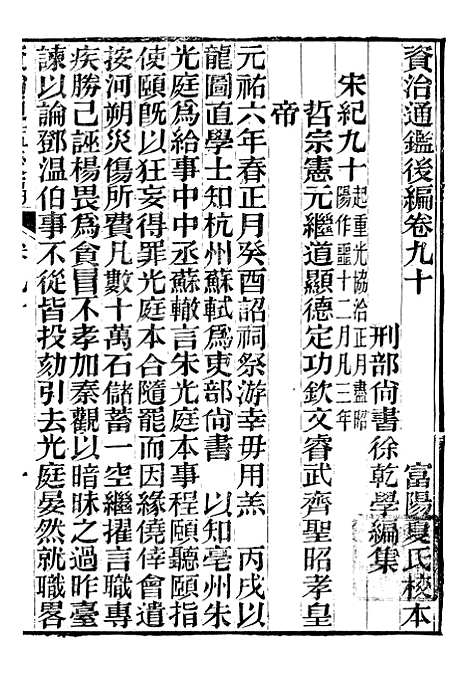 資治通鑑後編卷九十
富陽夏氏校本
刑部尙書徐乾學編集
宋紀九十起重光協洽正月盡昭
陽作噩十二月凡三年
哲宗憲元繼道顯德定功欽文睿武齊聖昭孝皇
帝
元祐六年春正月癸酉詔祠祭游幸毋用羔 丙戌以
龍圖直學士知杭州蘇軾爲吏部尙書 以知亳州朱
光庭爲給事中中丞蘇轍言朱光庭本事程頤聽頤指
使頤旣以狂妄得罪光庭本合隨罷而因緣僥倖會遣
按河朔災傷所費凡數十萬石儲蓄一空繼擢言職專
疾勝己誣楊畏爲貪冒不孝加秦觀以暗昧之過昨臺
諫以論鄧溫伯事不從皆投劾引去光庭晏然就職畧